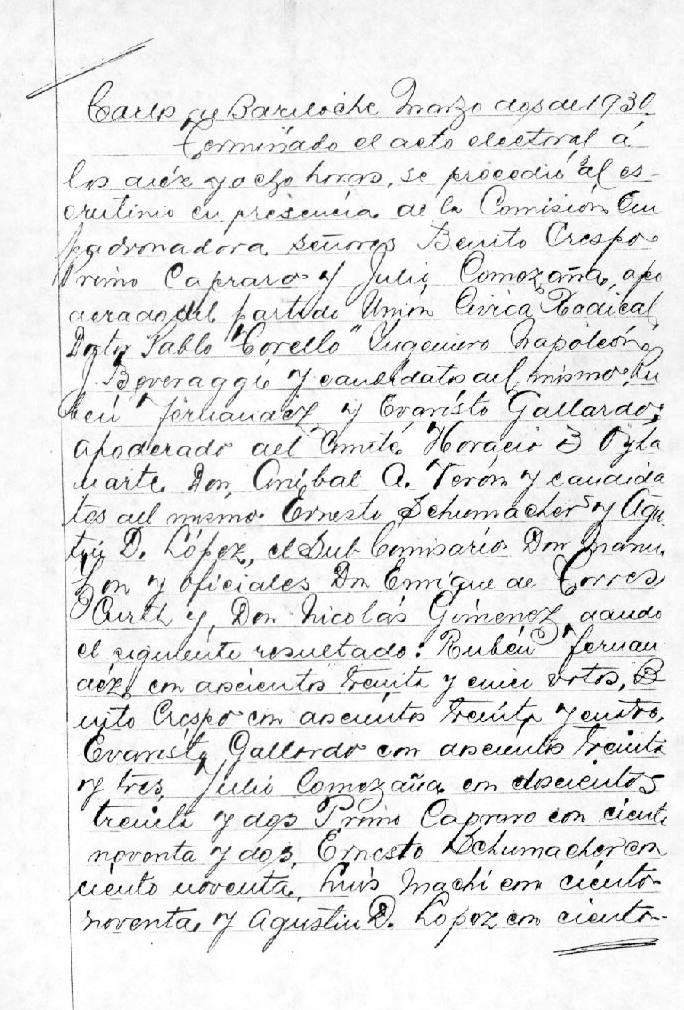 Carlos de Bariloche Marzo dos de 1930
Terminado el acto electoral, á
los diéz y ocho horas, se procedió al es-
crutinio en presencia de la Comision Em
padronadora señores Benito Crespo
Primo Capraro y Julio Comezaña, apo
derado del partido Unión Civica Radical,
Dgtor Pablo Torello Ingeniero Napoleón
J. Beveraggi y candidatos del mismo, Ru
bén Fernandez y Evaristo Gallardo;
apoderado del Comité Horacio B Oyha
narte Don Anibal A. Terón y candida
tos del mismo Ernesto Schumacher y Agus
tin D. López, el Sub Comisario Don
y oficiales Dn Enrique de Torres
y Don Nicolás Gimenez, dando
el siguiente resultado: Rubén Fernan
déz con doscientos treinta y cinco votos, B
nito Crespo con doscientos treinta y cuatro,
Evaristo Gallardo con doscientos treinta
y tres, Julio Comezaña con doscientos
treinta y dos Primo Capraro con ciento
noventa y dos, Ernesto Schumacher con
ciento noventa, Luis Machi con ciento
noventa, y Agustin D. López con ciento